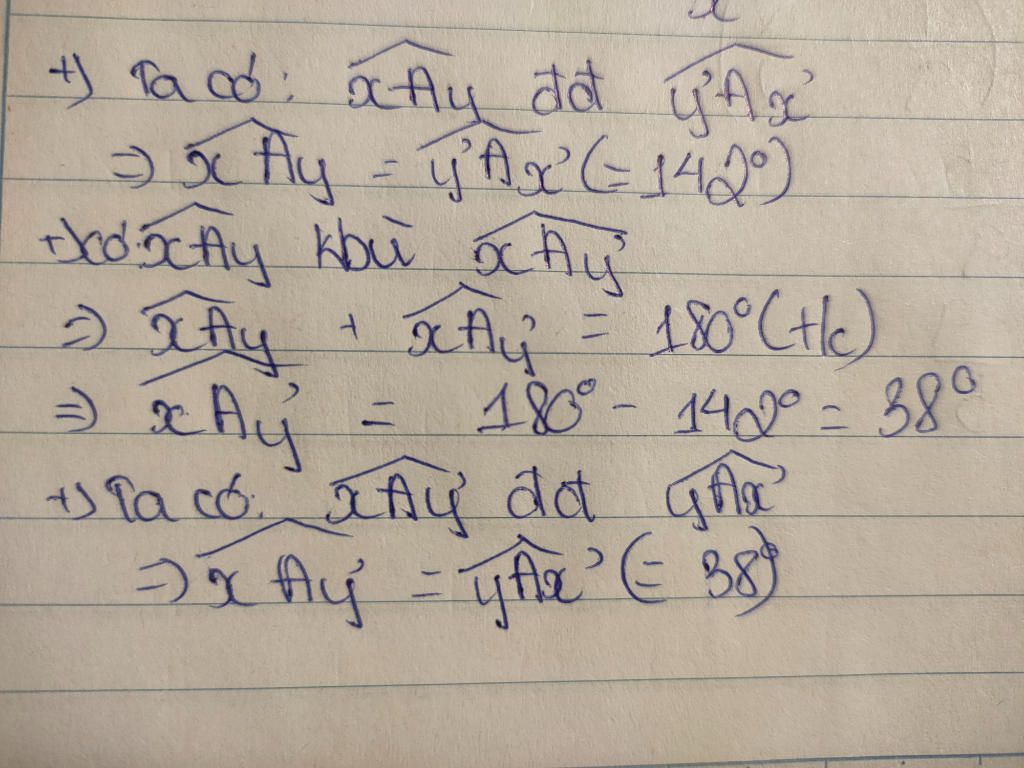 x
+) Ta có: xAy đđ y'Ax'
=> xAy = y'Ax' (= 142°)
+) có: xAy kbù xAy'
=> xAy + xAy' = 180° (t/c)
=> xAy' = 180° - 142° = 38°
+) Ta có: xAy' đđ yAx'
=> xAy' = yAx' (= 38°)